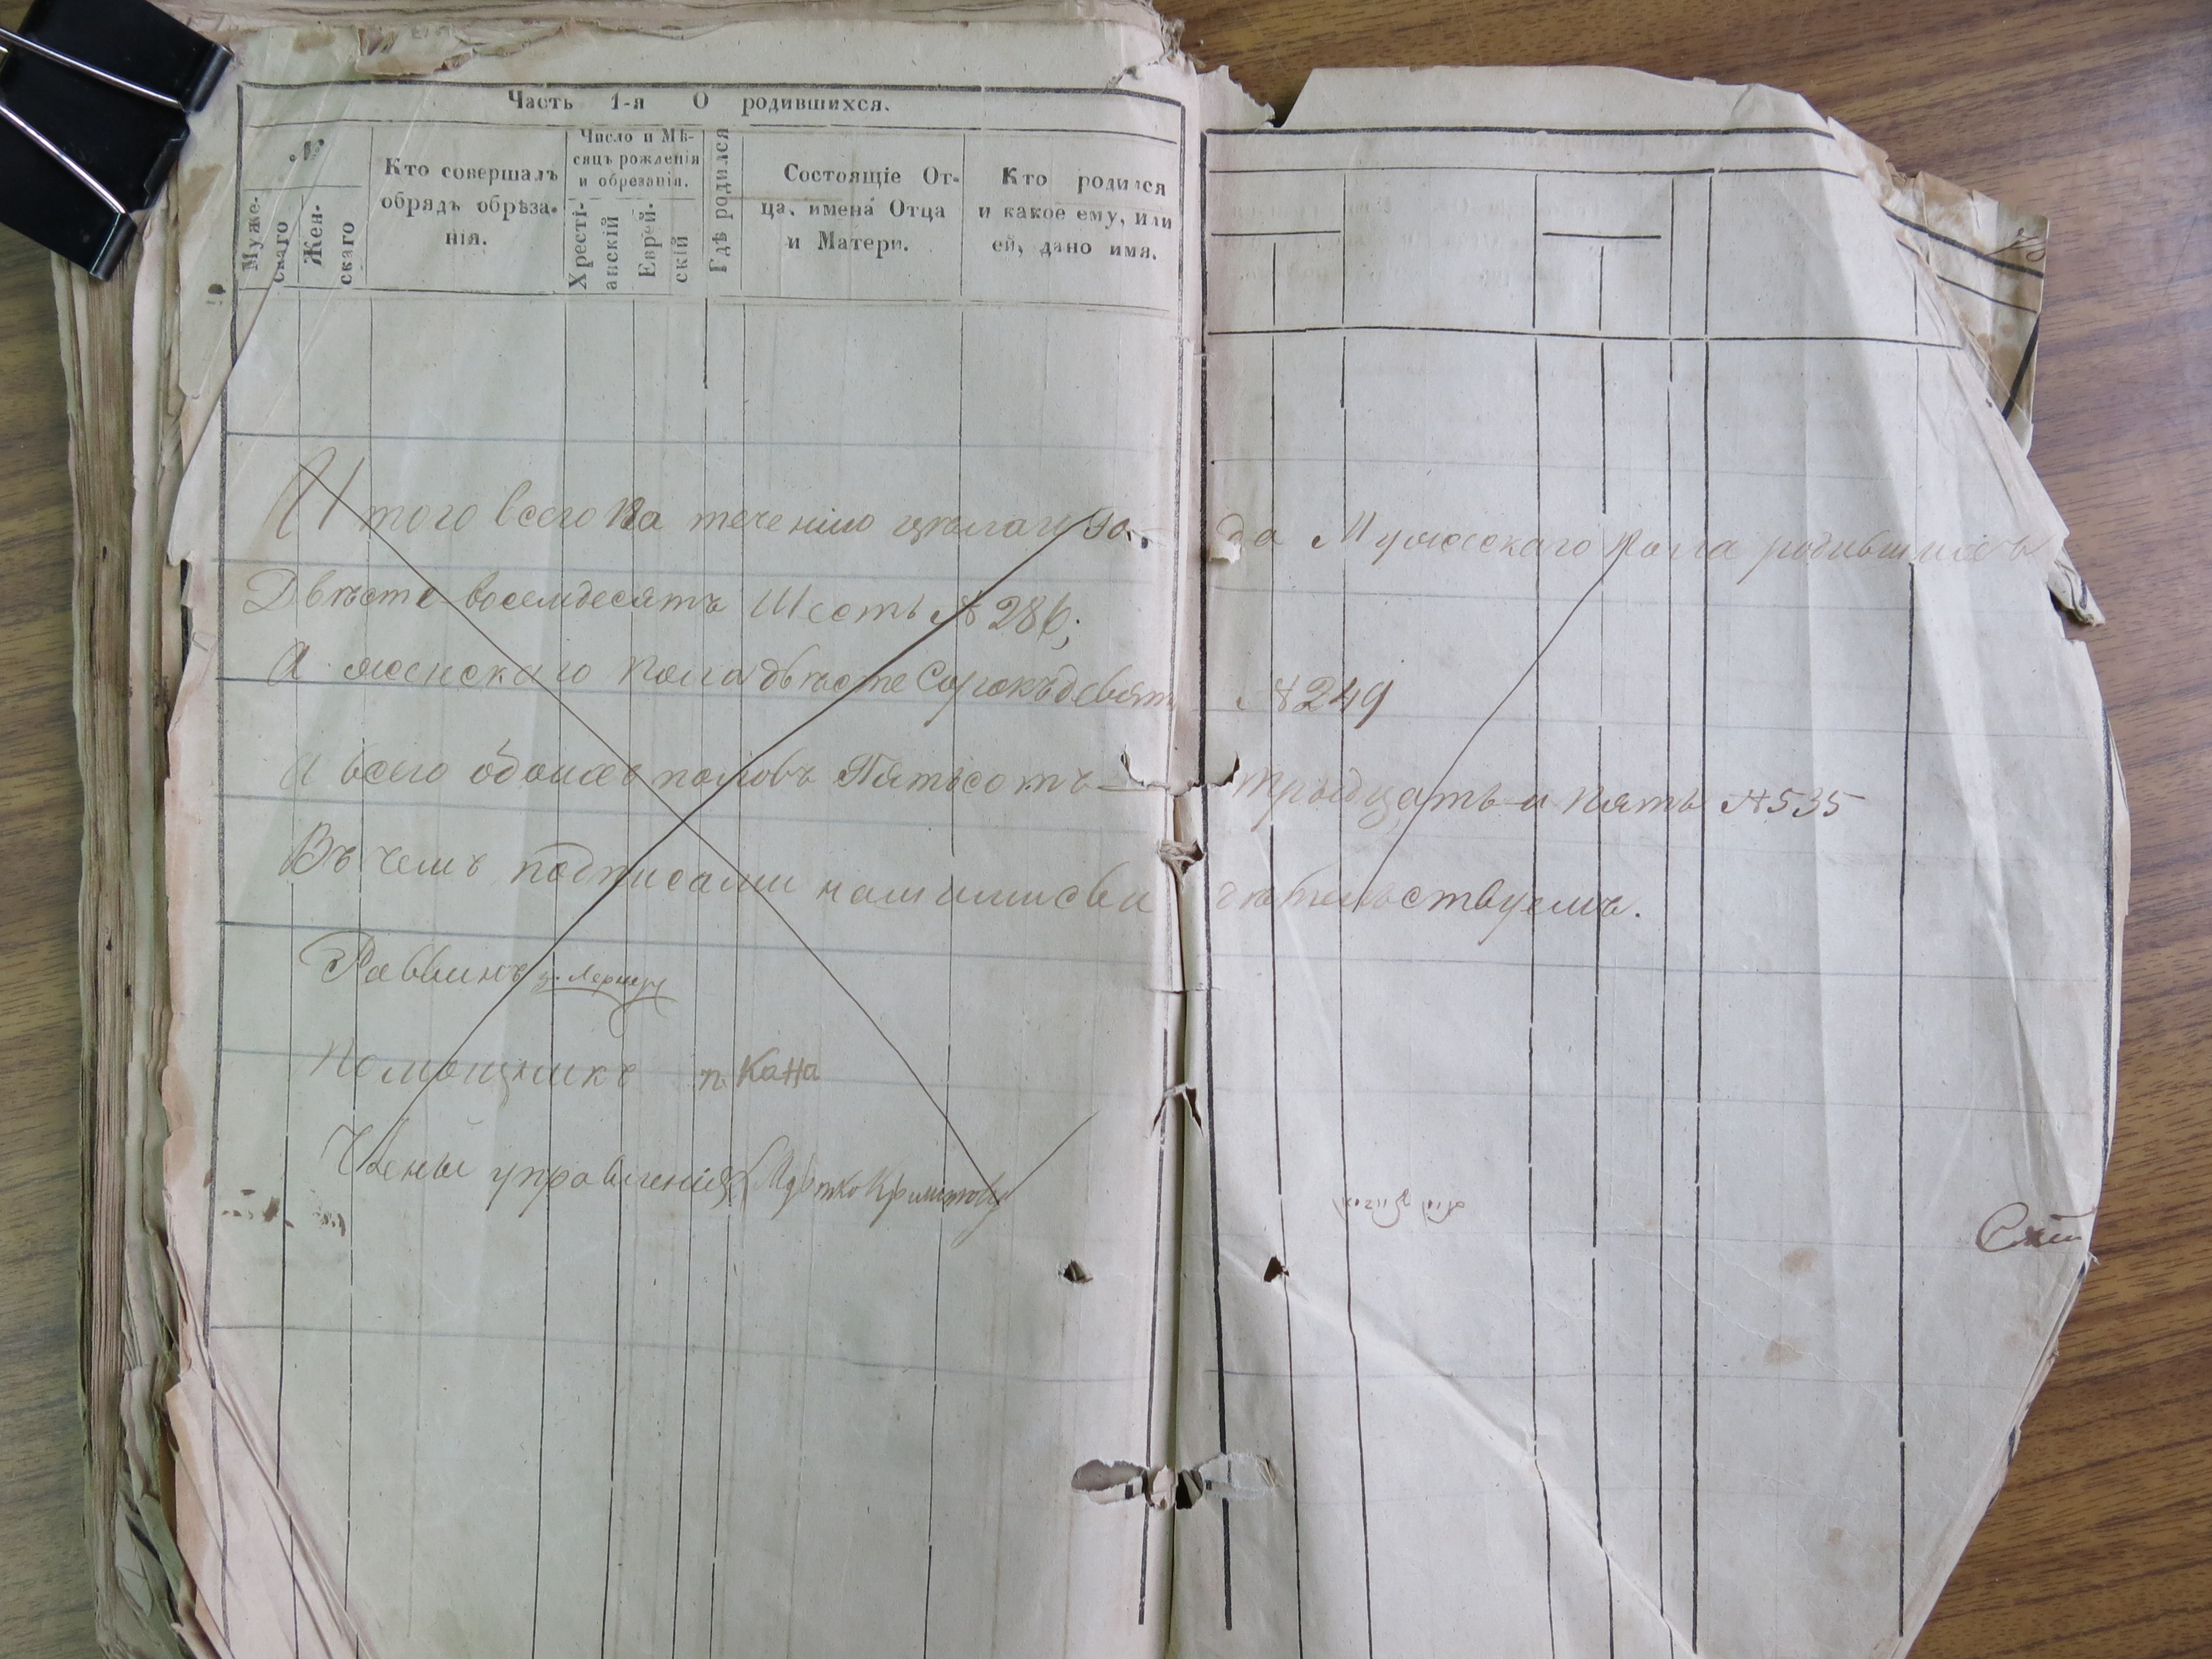 Часть 1-я О родившихся.
№
Муже-
скаго
Жен-
скаго
Кто совершалъ
обрядъ обрѣза-
нія.
Число и Мѣ-
сяцъ рожденія
и обрезанія.
Хрести-
анскій
Еврей-
скій
Гдѣ родился
Состоящіе От-
ца, имена Отца
и Матери.
Кто родился
и какое ему, или
ей, дано имя.
Итого всего на теченію цѣлаго го- да Мужескаго пола родившихсь
Двѣсте восемдесятъ Шесть № 286;
А женскаго пола двѣсте Сорокъ девят № 249
А всего обоихъ половъ Пятьсотъ — трыдцать и пять № 535
Въ чемъ подписами нашимисви дѣтельствуемъ.
Раввинъ
Помощникъ п. Кана
Члены управленія